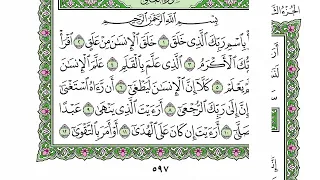 بِسْمِ ٱللَّهِ ٱلرَّحْمَٰنِ ٱلرَّحِيمِ
بِٱسْمِ رَبِّكَ ٱلَّذِى خَلَقَ ١ خَلَقَ ٱلْإِنسَٰنَ مِنْ عَلَقٍ ٢ ٱقْرَأْ
رَبُّكَ ٱلْأَكْرَمُ ٣ ٱلَّذِى عَلَّمَ بِٱلْقَلَمِ ٤ عَلَّمَ ٱلْإِنسَٰنَ
يَعْلَمْ ٥ كَلَّآ إِنَّ ٱلْإِنسَٰنَ لَيَطْغَىٰٓ ٦ أَن رَّءَاهُ ٱسْتَغْنَىٰٓ
إِنَّ إِلَىٰ رَبِّكَ ٱلرُّجْعَىٰٓ ٨ أَرَءَيْتَ ٱلَّذِى يَنْهَىٰ ٩ عَبْدًا
صَلَّىٰٓ ١٠ أَرَءَيْتَ إِن كَانَ عَلَى ٱلْهُدَىٰٓ ١١ أَوْ أَمَرَ بِٱلتَّقْوَىٰٓ ١٢
٥٩٧